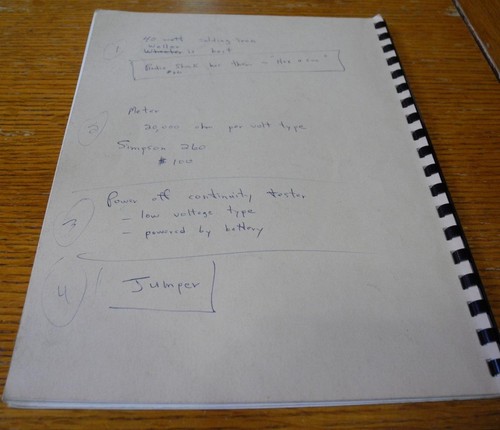 1
40 watt solding iron
weller is best
2
Meter
20,000 ohm per volt type
Simpson 260
$100
3
Power off continuity tester
- low voltage type
- powered by battery
4
Jumper